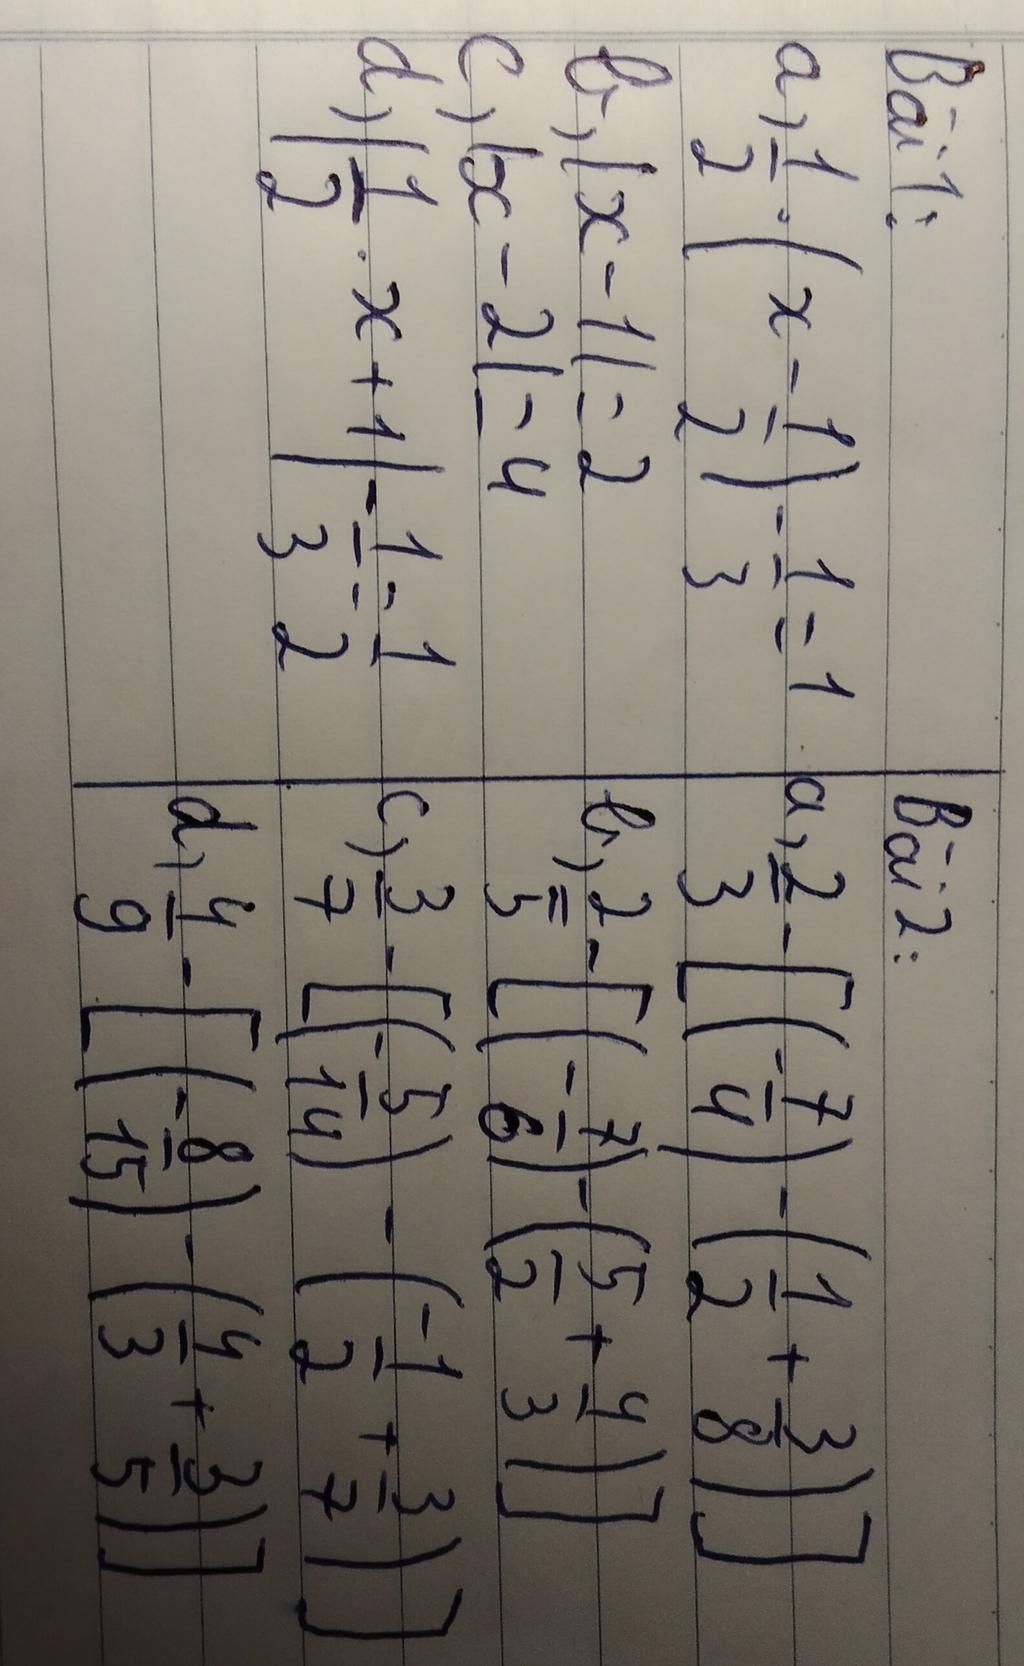 Bài 1:
a, 1/2 . (x - 1/2) - 1/3 = 1
b, |x - 1| = 2
c, |x - 2| = 4
d, |1/2 . x + 1| - 1/3 = 1/2
Bài 2:
a, 2/3 - [(-7/4) - (1/2 + 3/8)]
b, 2/5 - [(-7/6) - (5/2 + 4/3)]
c, 3/7 - [(-5/14) - (-1/2 + 3/7)]
d, 4/9 - [(-8/15) - (4/3 + 3/5)]